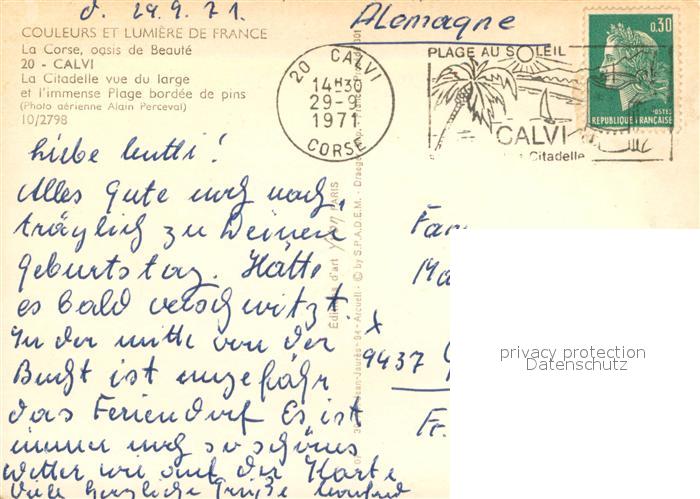 d. 29.9.71.
Alemagne
COULEURS ET LUMIÈRE DE FRANCE
La Corse, oasis de Beauté
20 - CALVI
La Citadelle vue du large
et l'immense Plage bordée de pins
(Photo aérienne Alain Perceval)
10/2798
20 CALVI
14H30
29-9
1971
CORSE
PLAGE AU SOLEIL
CALVI
Citadelle
0,30
POSTES
REPUBLIQUE FRANÇAISE
Liebe Mutti!
Alles Gute noch nach,
träglich zu Deinem
Geburtstag. Hätte
es bald verschwitzt.
In der mitte von der
Bucht ist ungefähr
das Feriendorf Es ist
immer noch so schönes
Wetter wie auf der Karte
Viele herzliche Grüße Manfred
Éditions d'art YVON PARIS
Jean-Jaurès - 94 - Arcueil - © by S.P.A.D.E.M. - Draeger
Fam
Ma
X
9437
Fr.
privacy protection
Datenschutz